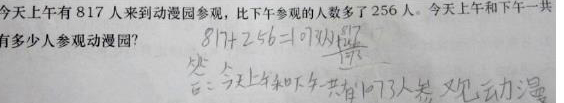 今天上午有 817 人来到动漫园参观，比下午参观的人数多了 256 人。今天上午和下午一共
有多少人参观动漫园?
817+256=1073(人)
817
+256
1073
答：今天上午和下午一共有1073人参观动漫